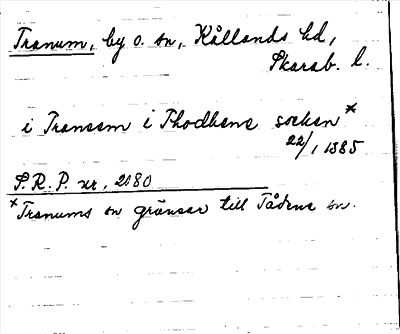 Tranum, by o. sn, Kållands hd,
Skarab. l.
i Transem i Thodhene socken *
22/1 1385
S. R. P. nr, 2080
* Tranums sn gränsar till Tådene sn.